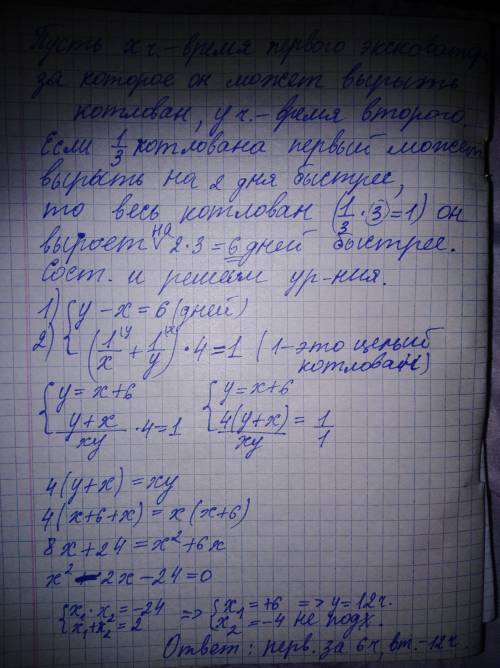 Пусть x ч. – время первого экскаватора
за которое он может вырыть
котлован, y ч. – время второго.
Если 1/3 котлована первый может
вырыть на 2 дня быстрее,
то весь котлован (1/3 · 3 = 1) он
выроет на 2·3 = 6 дней быстрее.
Сост. и решим ур-ния.
1) { y – x = 6 (дней)
2) { (1/x + 1/y) · 4 = 1 (1 – это целый
котлован)
{ y = x+6 { y = x+6
{ y+x/xy · 4 = 1 { 4(y+x)/xy = 1/1
4(y+x) = xy
4(x+6+x) = x(x+6)
8x+24 = x²+6x
x² – 2x – 24 = 0
{ x₁·x₂ = –24 => { x₁ = +6 => y = 12ч.
{ x₁+x₂ = 2 { x₂ = –4 не подх.
Ответ: перв. за 6ч, вт. – 12ч.